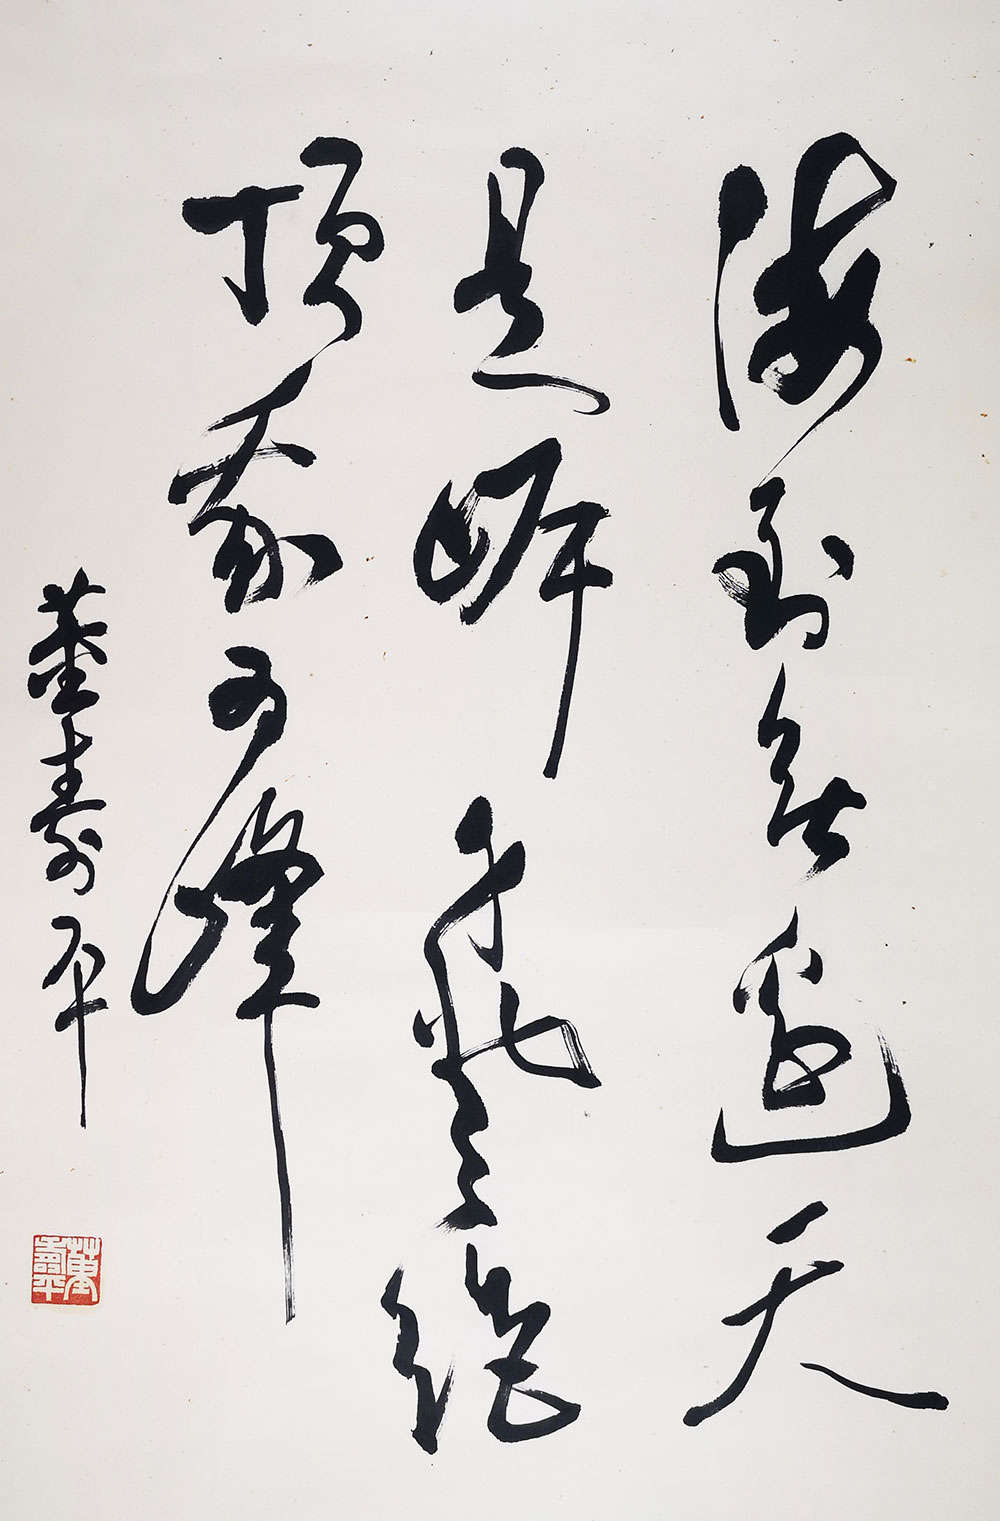 海到無邊天
是岸藝絕
頂我為峰
董壽平
董壽平